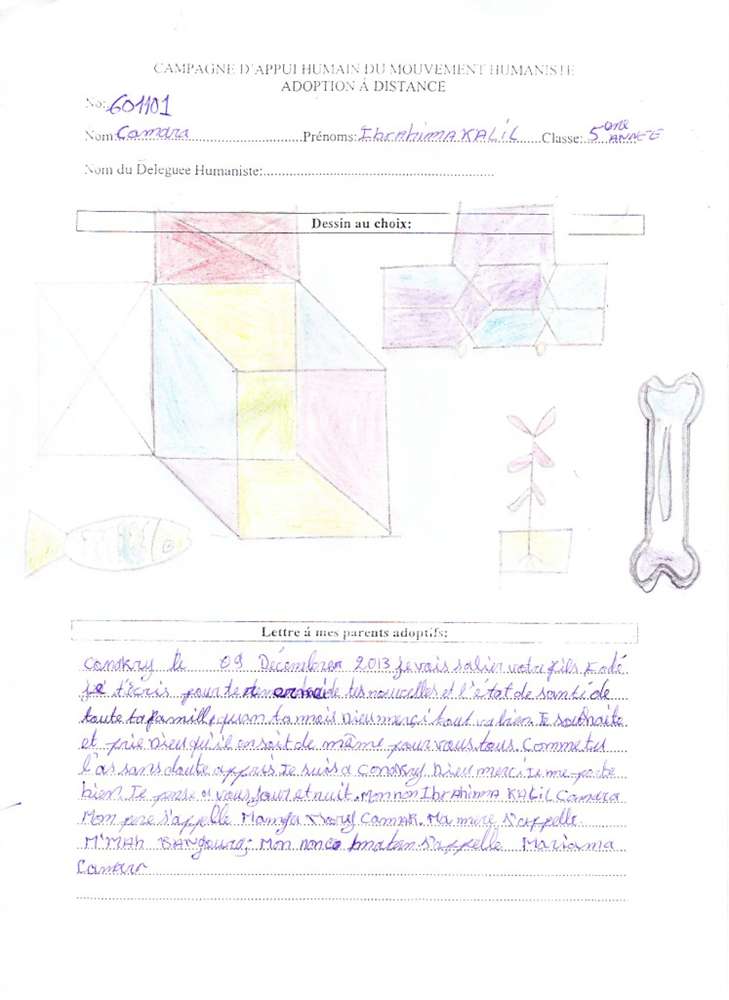 CAMPAGNE D'APPUI HUMAIN DU MOUVEMENT HUMANISTE
ADOPTION À DISTANCE
No: 601101
Nom: Camara Prénoms: Ibrahima KALIL Classe: 5ème ANNEE
Nom du Deleguee Humaniste:
Dessin au choix:
Lettre á mes parents adoptifs:
Conakry le 09 Décembrer 2013 je vais salier votre fils
je t'écris pour te de tes nouvelles et l'état de santé de
toute ta famille, quan ta moi Dieu merci tout va bien Je souhaite
et prie Dieu qu'il en soit de même pour vous tous. Comme tu
l'as sans doute appris Je suis a Conakry Dieu merci Je me porte
bien Je pense a vous jour et nuit. Mon non Ibrahima KALIL Camara
Mon pere s'appelle Ma mere s'appelle
M'MAH BANgoura; Mon s'appelle Mariama
Camara